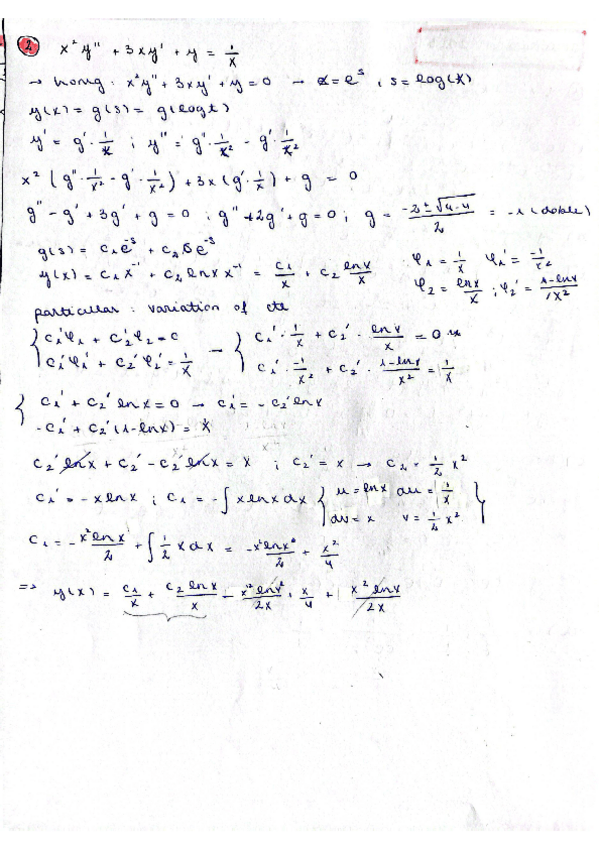 2 x² y'' + 3xy' + y = 1/x
→ homg: x²y'' + 3xy' + y = 0 → x = e^s ; s = log(x)
y(x) = g(s) = g(log t)
y' = g' · 1/x ; y'' = g'' · 1/x² - g' · 1/x²
x² (g'' · 1/x² - g' · 1/x²) + 3x (g' · 1/x) + g = 0
g'' - g' + 3g' + g = 0 ; g'' + 2g' + g = 0 ; g = (-2 ± √(4-4))/2 = -1 (doble)
g(s) = c₁e^-s + c₂ s e^-s
y(x) = c₁ x^-1 + c₂ ln x x^-1 = c₁/x + c₂ ln x/x φ₁ = 1/x φ₁' = -1/x²
φ₂ = ln x/x ; φ₂' = (1-ln x)/x²
particular : variation of cte
{ c₁'φ₁ + c₂'φ₂ = 0 → { c₁' · 1/x + c₂' · ln x/x = 0
{ c₁'φ₁' + c₂'φ₂' = 1/x { c₁' · -1/x² + c₂' · (1-ln x)/x² = 1/x
{ c₁' + c₂' ln x = 0 → c₁' = - c₂' ln x
-c₁' + c₂' (1-ln x) = x
c₂' ln x + c₂' - c₂' ln x = x ; c₂' = x → c₂ = 1/2 x²
c₁' = - x ln x ; c₁ = -∫ x ln x dx { u = ln x du = 1/x
dv = x v = 1/2 x² }
c₁ = - x² ln x/2 + ∫ 1/2 x dx = - x² ln x/2 + x²/4
=> y(x) = c₁/x + c₂ ln x/x - x² ln x/2x + x/4 + x² ln x/2x